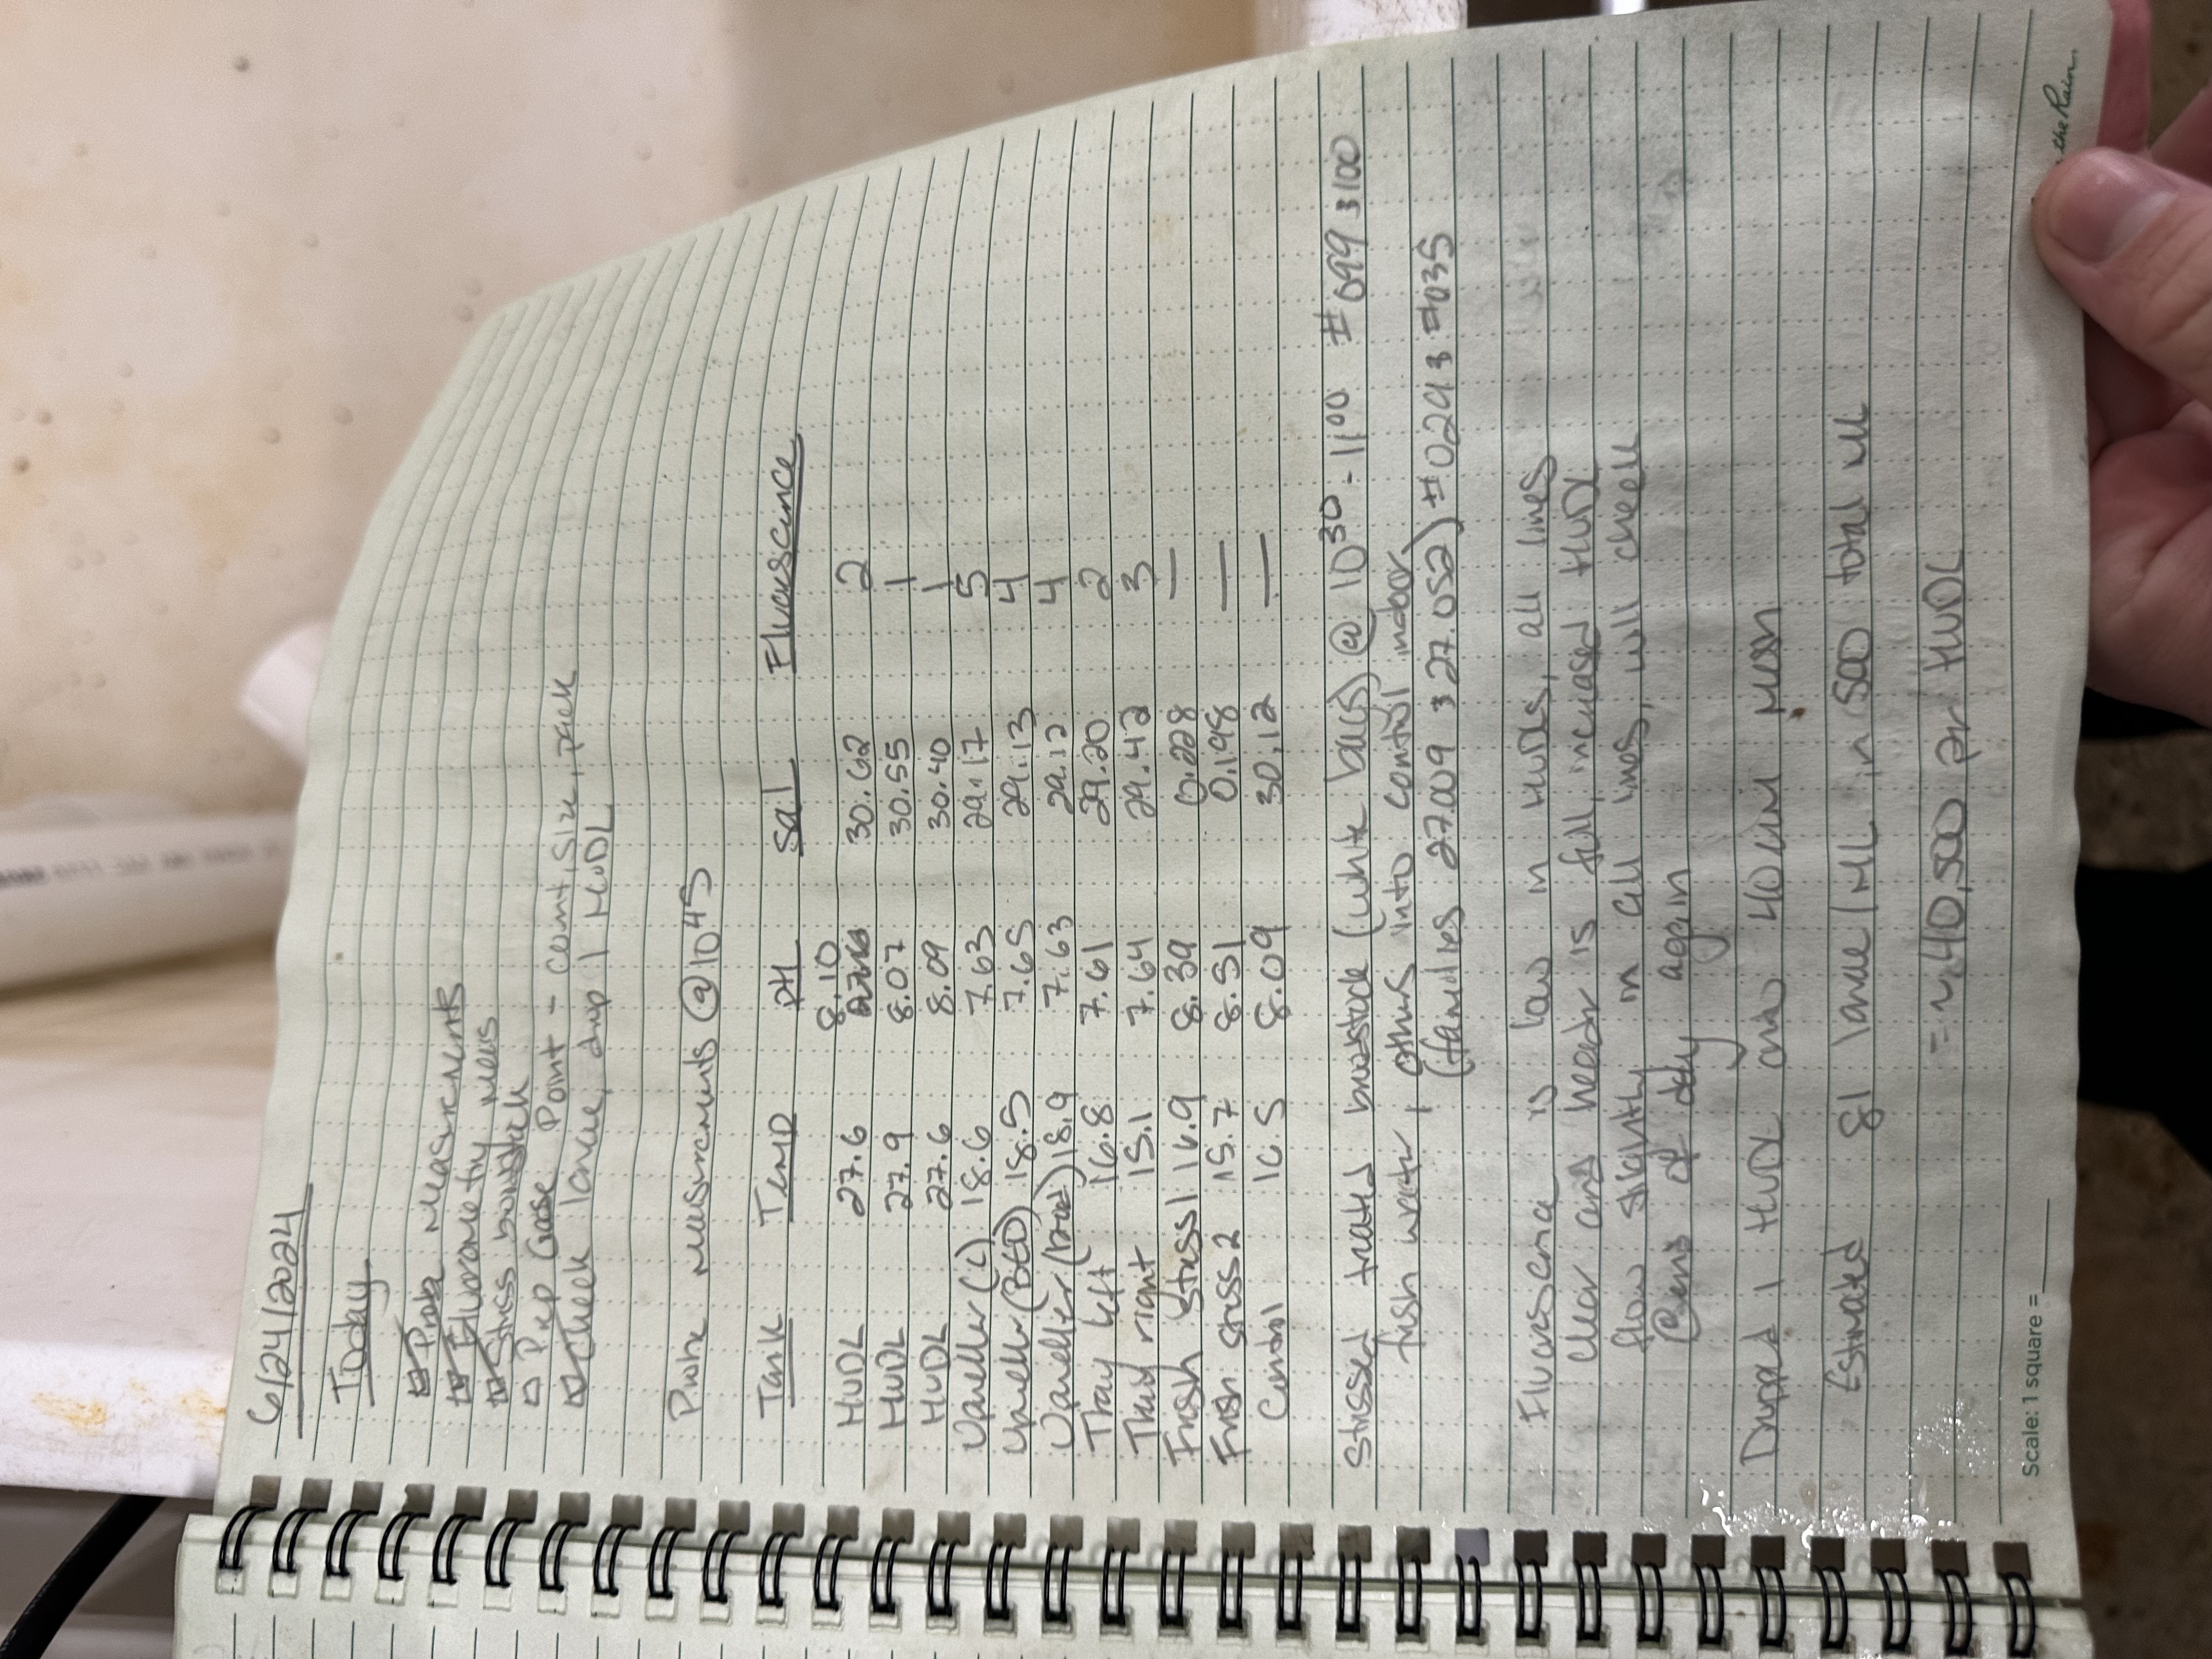 6/24/2024
Today
Probe measurements
Fluorometry meas
Stress broodstock
Prep Goose Point - count, size, pack
Check larvae, drop 1 HUDL
Probe measurements @ 10 45
Tank Temp pH Sal Fluorescence
8.10
HUDL 27.6 30.62 2
HUDL 27.9 8.07 30.55 1
HUDL 27.6 8.09 30.40 1
Upweller (L) 18.6 7.63 29.17 5
Upweller 18.5 7.65 29.13 4
Upweller 18.9 7.63 29.12 4
Tray left 16.8 7.61 29.20 2
Tray right 15.1 7.64 29.42 3
Fresh stress 1 16.9 8.39 0.228 —
Fresh stress 2 15.7 8.51 0.198 —
Control 16.5 8.09 30.12 —
Stressed treated broodstock (white bags) @ 10 30 - 11 00 #099 & 100
fresh water, others into control indoor
(families 27.009 & 27.052) #029 & #035
Fluorescence is low in HUDLs, all lines
clear and header is full, increased HUDL
flow slightly in all lines, will check
@ end of day again
Dropped 1 HUDL onto 40 um mesh
Estimated 81 larvae/mL in 500 total mL
= ~40,500 per HUDL
Scale: 1 square =
the Rain